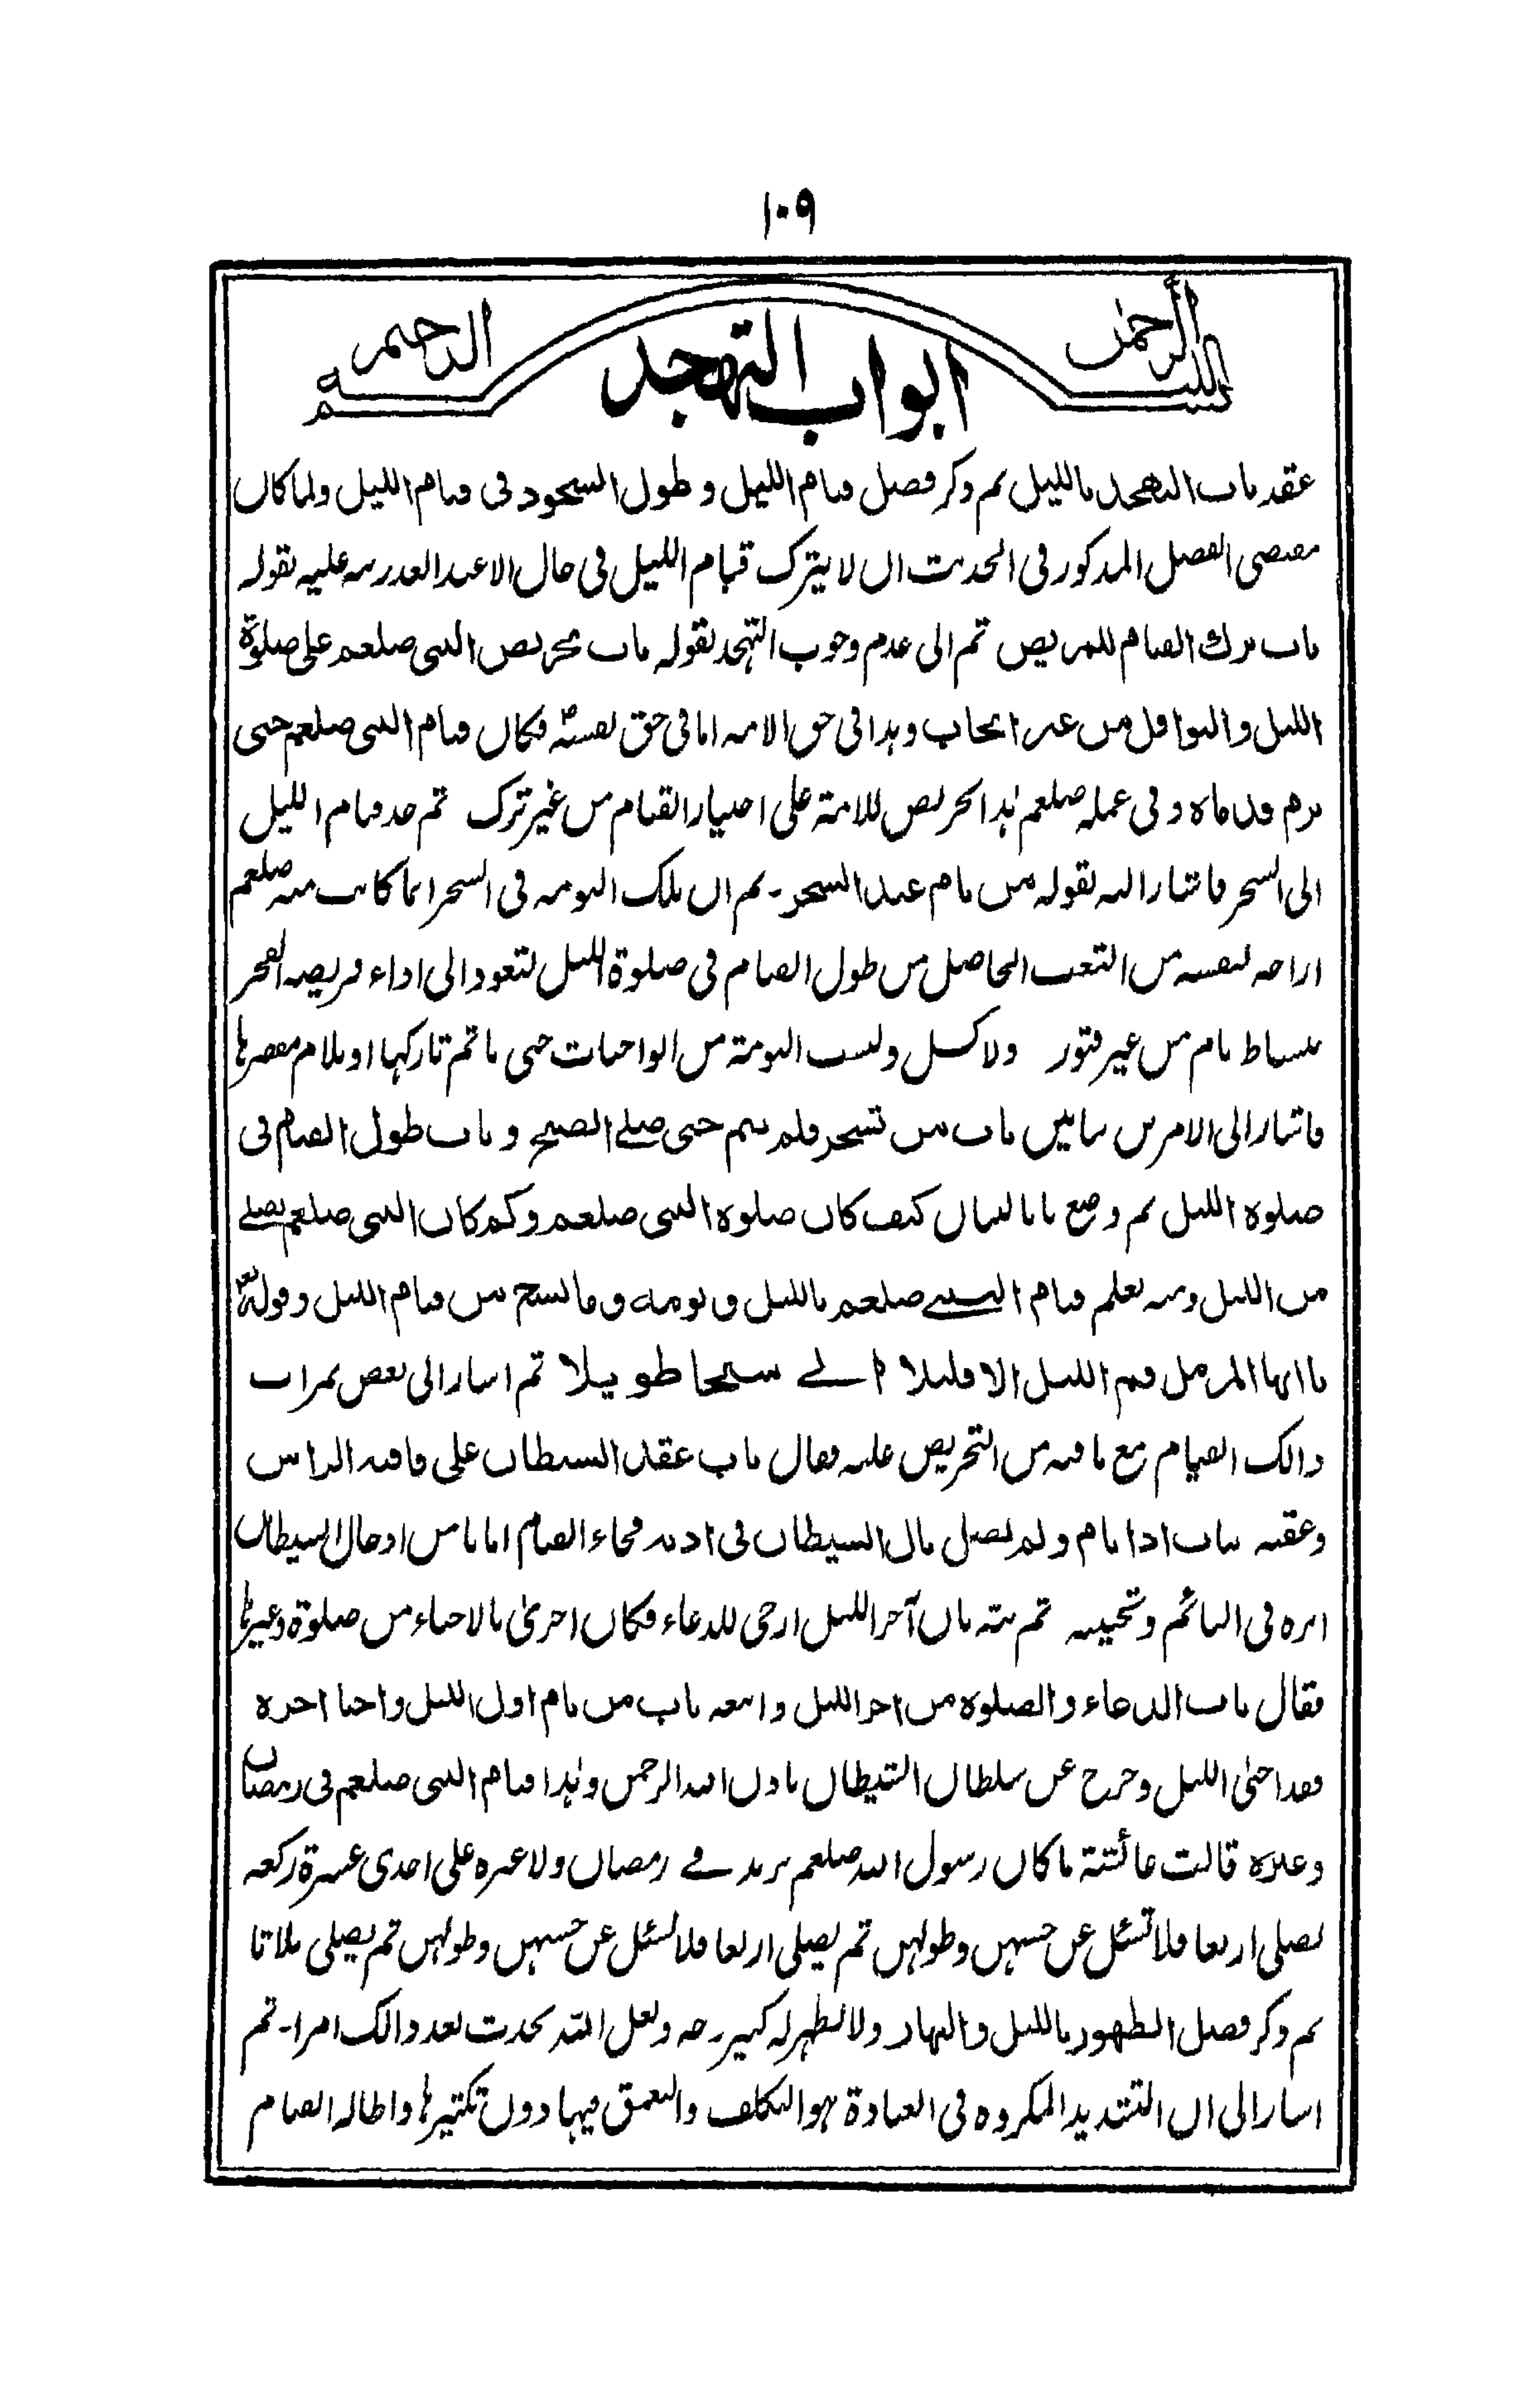 ١٠٩
بسم الله الرحمن الرحيم
ابواب التهجد
عقد باب التهجد بالليل ثم ذكر فضل قيام الليل و طول السجود فى قيام الليل ولما كان
مقتضى الفضل المذكور فى الحديث ان لا يترك قيام الليل فى حال الا عند العذر نبه عليه بقوله
باب ترك القيام للمريض ثم الى عدم وجوب التهجد بقوله باب تحريص النبى صلعم على صلوة
الليل و النوافل من غير ايجاب وهذا فى حق الامة اما فى حق نفسه فكان قيام النبى صلعم حتى
ترم قدماه و فى عمله صلعم هذا تحريص للامة على اختيار القيام من غير ترك ثم حد قيام الليل
الى السحر فاشار اليه بقوله من نام عند السحر - ثم ان تلك النومة فى السحر انما كانت منه صلعم
اراحة لنفسه من التعب الحاصل من طول القيام فى صلوة الليل لتعود الى اداء فريضة الفجر
بنشاط تام من غير فتور ولا كسل وليست النومة من الواجبات حتى ياثم تاركها او يلام مقصرها
فاشار الى الامرين ببابين باب من تسحر فلم ينم حتى صلے الصبح و باب طول القيام فى
صلوة الليل ثم وضع بابا لبيان كيف كان صلوة النبى صلعم وكم كان النبى صلعم يصلے
من الليل ومنه يعلم قيام النبے صلعم بالليل و نومه و ما نسخ من قيام الليل وقوله تعه
يا ايها المزمل قم الليل الا قليلا الے سبحا طويلا ثم اشار الى بعض ثمرات
ذالك القيام مع ما فيه من التحريص عليه فقال باب عقد الشيطان على قافية الراس
وعقبه بباب اذا نام و لم يصل بال الشيطان فى اذنه فجاء القيام امانا من ادخال الشيطان
اثره فى النائم و تخبيثه ثم نبه بان آخر الليل ارجى للدعاء فكان احرى بالاحياء من صلوة وغيرها
فقال باب الدعاء والصلوة من اخر الليل و اتبعه باب من نام اول الليل و احيا اخره
فقد احيى الليل وخرج عن سلطان الشيطان باذن الله الرحمن وهذا قيام النبى صلعم فى رمضان
وغيره قالت عائشة ما كان رسول الله صلعم يزيد فے رمضان ولا غيره على احدى عشرة ركعة
يصلى اربعا فلا تسئل عن حسنهن وطولهن ثم يصلى اربعا فلا تسئل عن حسنهن وطولهن ثم يصلى ثلاثا
ثم ذكر فضل الطهور بالليل و النهار و لعل الله يحدث بعد ذالك امرا - ثم
اشار الى ان التشديد المكروه فى العبادة هو التكلف والتعمق فيها دون تكثيرها و اطالة القيام